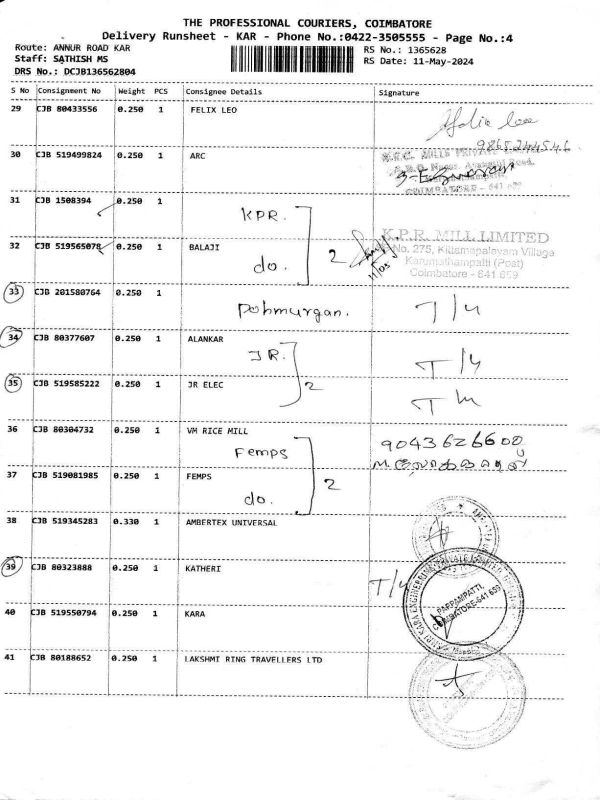 THE PROFESSIONAL COURIERS, COIMBATORE
Delivery Runsheet - KAR - Phone No.:0422-3505555 - Page No.:4
Route: ANNUR ROAD KAR
RS No.: 1365628
Staff: SATHISH MS
RS Date: 11-May-2024
DRS No.: DCJB136562804
S No Consignment No Weight PCS Consignee Details Signature
29 CJB 80433556 0.250 1 FELIX LEO
9865244546
30 CJB 519499824 0.250 1 ARC
COIMBATORE - 641
31 CJB 1508394 0.250 1
KPR.
K.P.R. MILL LIMITED
32 CJB 519565078 0.250 1 BALAJI
No. 275, Kittampalayam Village
do. 2 11/05
Karumathampatti (Post)
Coimbatore - 641 659
33 CJB 201580764 0.250 1
T/4
34 CJB 80377607 0.250 1 ALANKAR
JR.
T/4
35 CJB 519585222 0.250 1 JR ELEC
2
36 CJB 80304732 0.250 1 VM RICE MILL
9043626600
Femps
37 CJB 519081985 0.250 1 FEMPS
do. 2
38 CJB 519345283 0.330 1 AMBERTEX UNIVERSAL
39 CJB 80323888 0.250 1 KATHERI
T/4
PAPPAMPATTI,
COIMBATORE-641 659
40 CJB 519550794 0.250 1 KARA
41 CJB 80188652 0.250 1 LAKSHMI RING TRAVELLERS LTD